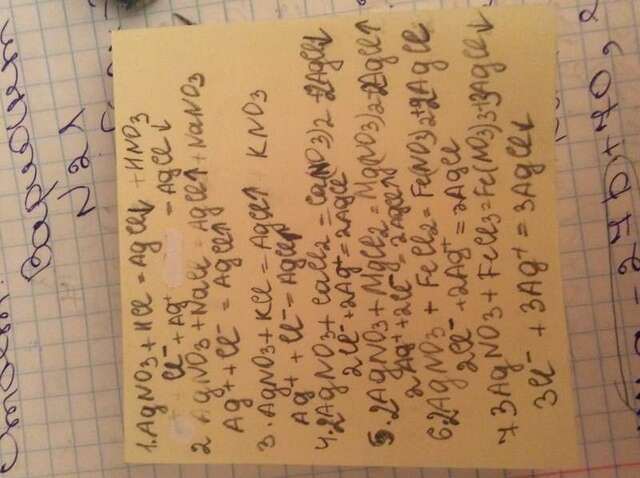 Ответ:
Вариант
N21
1. AgNO3 + HCl = AgCl↓ + HNO3
Cl⁻ + Ag⁺ = AgCl↓
2 AgNO3 + NaCl = AgCl↑ + NaNO3
Ag⁺ + Cl⁻ = AgCl↑
3. AgNO3 + KCl = AgCl↑ KNO3
Ag⁺ + Cl⁻ = AgCl↑
4. 2AgNO3 + CaCl2 = Ca(NO3)2 + 2AgCl↓
2Cl⁻ + 2Ag⁺ = 2AgCl
5. 2AgNO3 + MgCl2 = Mg(NO3)2 + 2AgCl↑
2Ag⁺ + 2Cl⁻ = 2AgCl↑
6. 2AgNO3 + FeCl2 = Fe(NO3)2 + 2AgCl
2Cl⁻ + 2Ag⁺ = 2AgCl
7 3AgNO3 + FeCl3 = Fe(NO3)3 + 3AgCl↓
3Cl⁻ + 3Ag⁺ = 3AgCl↓
- 27b + 70,